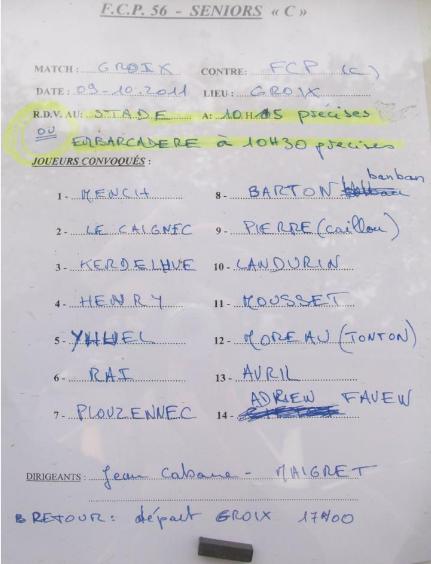 F.C.P. 56 - SENIORS « C »
MATCH : GROIX CONTRE : FCP (C)
DATE : 09-10.2011 LIEU : GROIX
R.D.V. AU: STADE A: 10H15 précises
OU EMBARCADERE à 10H30 precises
JOUEURS CONVOQUÉS :
1 - MENCH 8 - BARTON banban
2 - LE CAIGNEC 9 - PIERRE (caillou)
3 - KERDELHUE 10 - LANDURIN
4 - HENRY 11 - MOUSSET
5 - YHUEL 12 - MOREAU (TONTON)
6 - RAI 13 - AVRIL
7 - PLOUZENNEC 14 - ADRIEN FAVEN
DIRIGEANTS : Jean Cabane - MAIGRET
RETOUR : départ GROIX 17H00